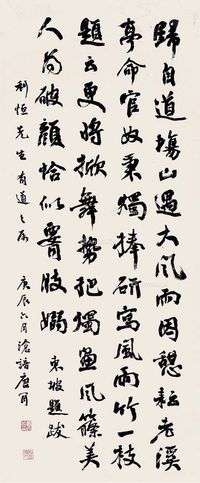 歸自道塲山遇大風雨因憩耘老溪
亭命官奴秉燭捧硏寫風雨竹一枝
題云更將掀舞勢把燭畫風篠美
人為破顏恰似腰肢嫋 東坡題跋
利恒先生有道之属 庚辰六月滄諳唐肎